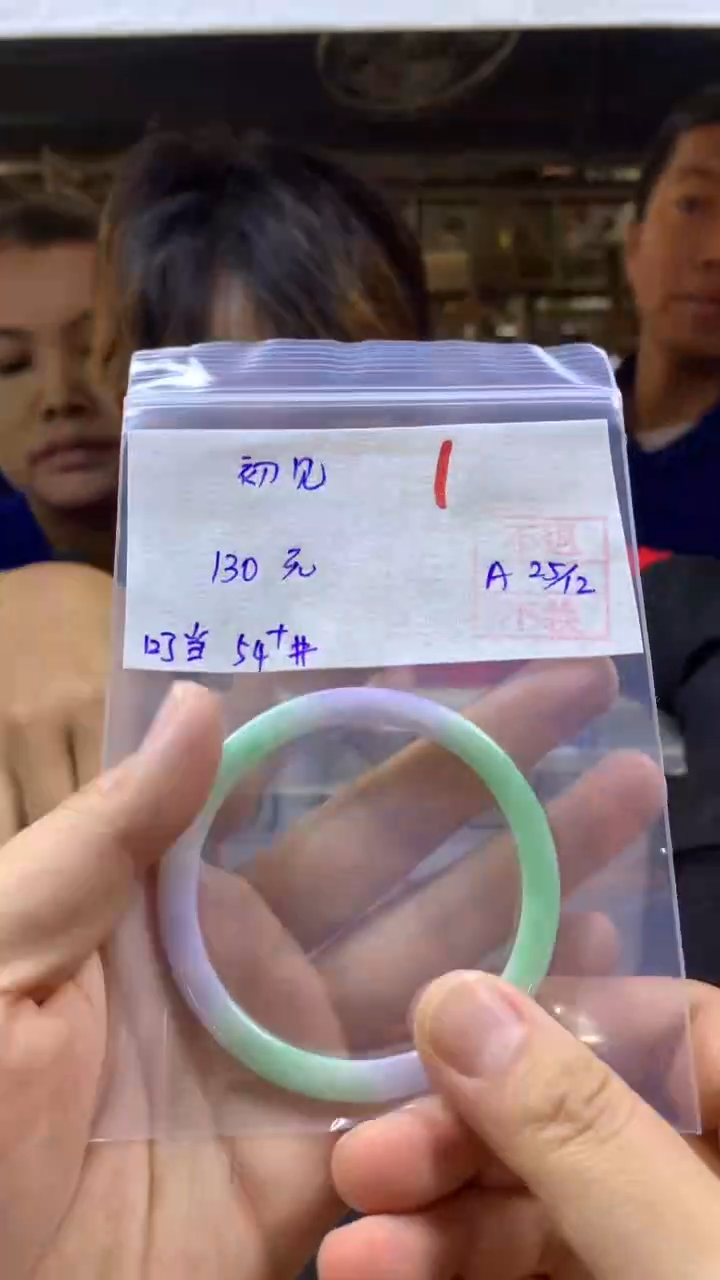 初见
130 元
A 25/12
不退
不换
叮当 54⁺#